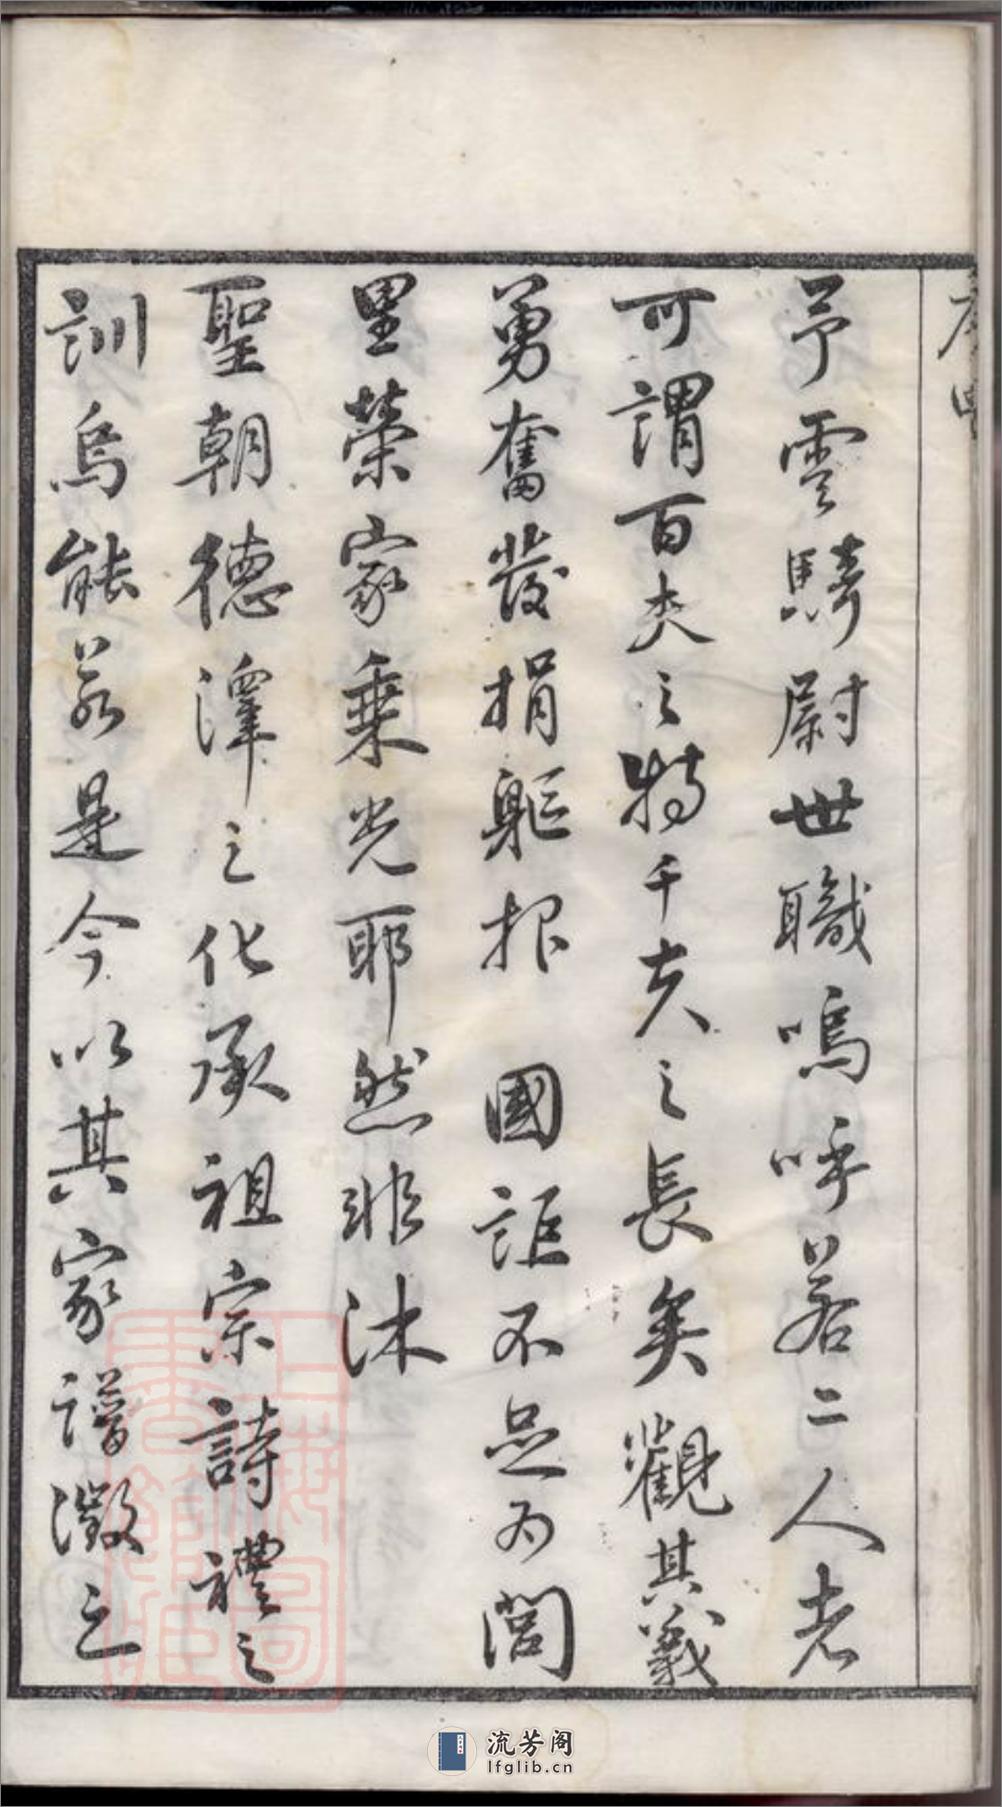 予雲騎尉世職嗚呼若二人者
可謂百夫之特千夫之長矣觀其義
勇奮發捐軀報 國詎不足為閭
里榮家乘光耶然非沐
聖朝德澤之化承祖宗詩禮之
訓烏能若是今以其家譜徵之
流芳阁
lfglib.cn